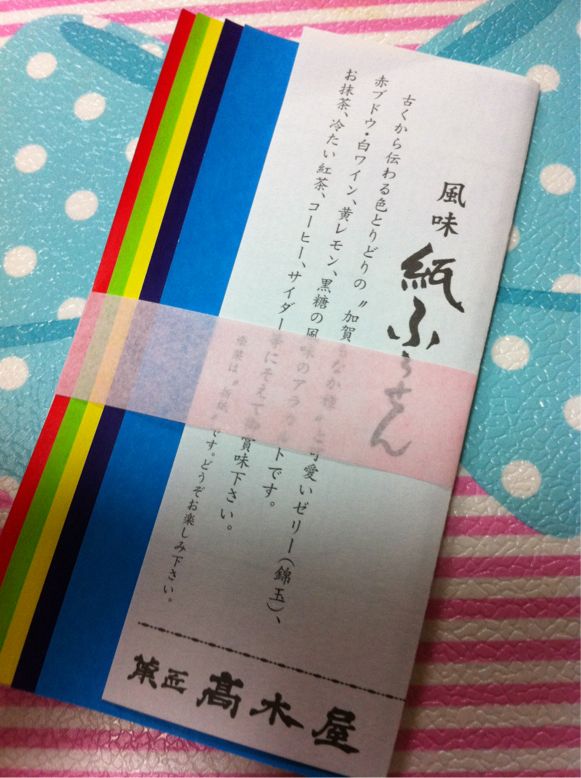 風味 紙ふうせん
古くから伝わる色とりどりの〝加賀もなか種〟と可愛いゼリー(錦玉)、
赤ブドウ・白ワイン、黄レモン、黒糖の風味のアラカルトです。
お抹茶、冷たい紅茶、コーヒー、サイダー等にそえて御賞味下さい。
です。どうぞお楽しみ下さい。
菓匠 髙木屋